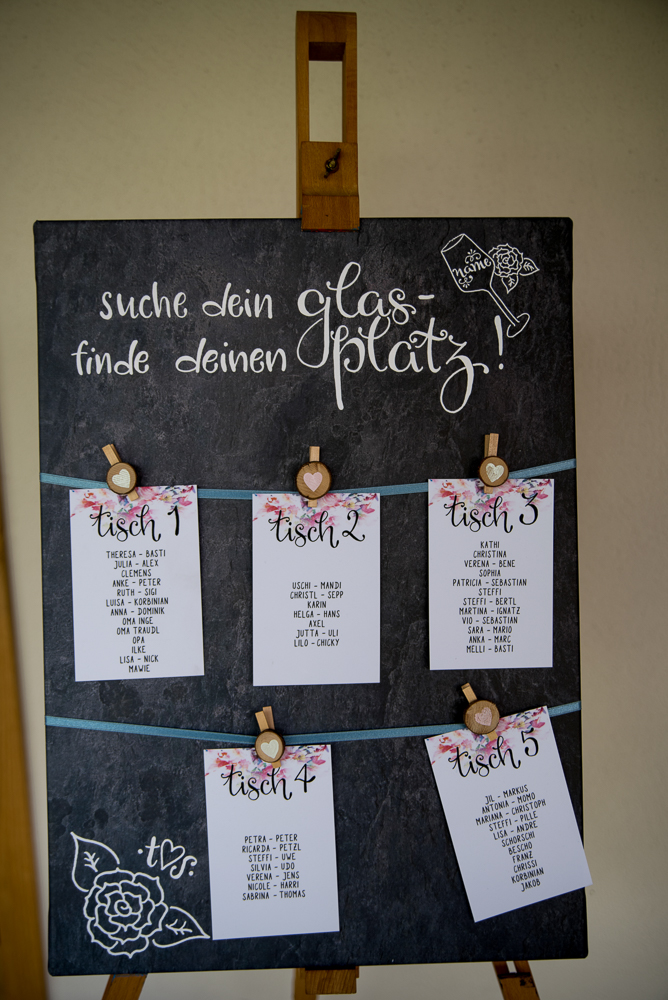 name
suche dein glas-
finde deinen platz!
tisch 1
THERESA - BASTI
JULIA - ALEX
CLEMENS
ANKE - PETER
RUTH - SIGI
LUISA - KORBINIAN
ANNA - DOMINIK
OMA INGE
OMA TRAUDL
OPA
ILKE
LISA - NICK
MAWIE
tisch 2
USCHI - MANDI
CHRISTL - SEPP
KARIN
HELGA - HANS
AXEL
JUTTA - ULI
LILO - CHICKY
tisch 3
KATHI
CHRISTINA
VERENA - BENE
SOPHIA
PATRICIA - SEBASTIAN
STEFFI
STEFFI - BERTL
MARTINA - IGNATZ
VIO - SEBASTIAN
SARA - MARIO
ANKA - MARC
MELLI - BASTI
tisch 4
PETRA - PETER
RICARDA - PETZL
STEFFI - UWE
SILVIA - UDO
VERENA - JENS
NICOLE - HARRI
SABRINA - THOMAS
tisch 5
JIL - MARKUS
ANTONIA - MOMO
MARIANA - CHRISTOPH
STEFFI - PILLE
LISA - ANDRE
SCHORSCHI
BESCHO
FRANZ
CHRISSI
KORBINIAN
JAKOB
·t♡s·